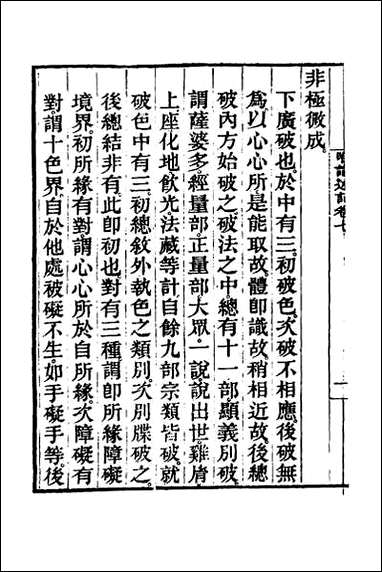 非極微成。
下廣破也。於中有三。初破色。次破不相應。後破無
爲。以心心所是能取故。體卽識故。稍相近故。後總
破內方始破之。破法之中總有十一部。顯義別破。
謂薩婆多。經量部。正量部。大眾。一說。說出世。雞胤。
上座。化地。飮光。法藏等計。自餘九部宗類皆破。就
破色中有三。初總敘外執色之類別。次別牒破之。
後總結非有。此卽初也。對有三種。謂卽所緣障礙
境界。初所緣有對。謂心心所於自所緣。次障礙有
對。謂十色界自於他處被礙不生。如手礙手等。後
述記卷七